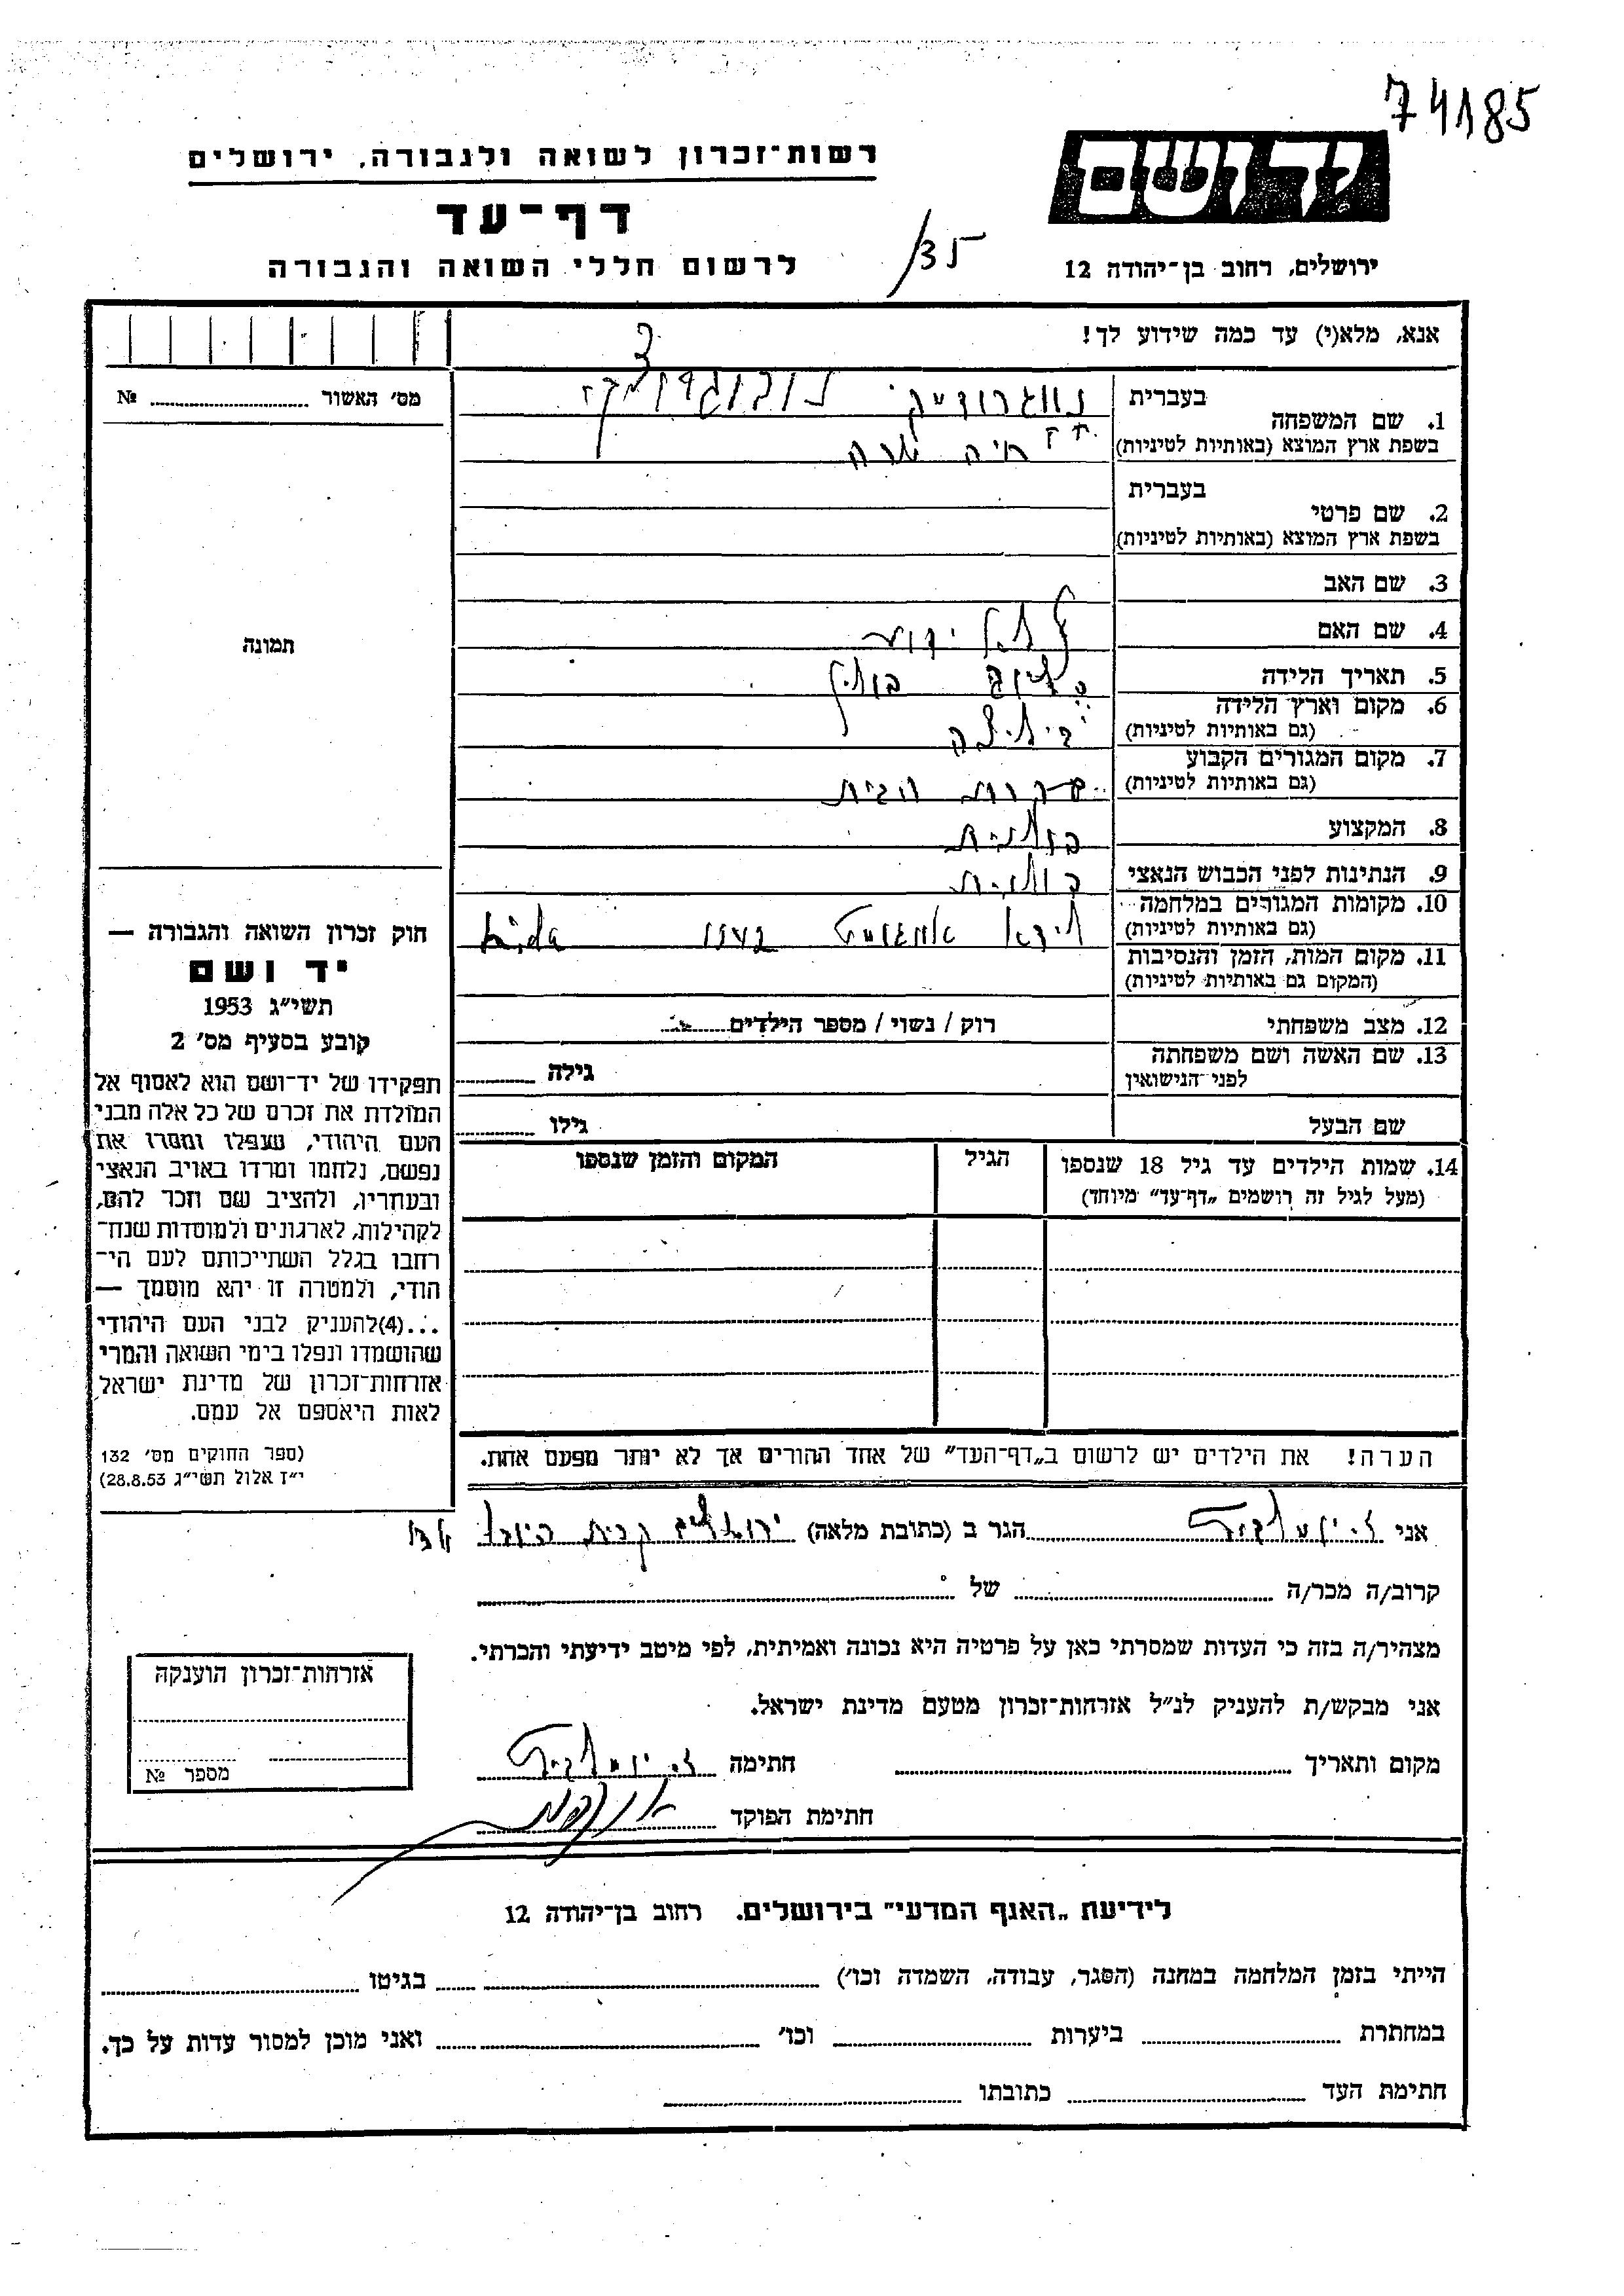 74185
יד ושם
רשות־זכרון לשואה ולגבורה, ירושלים
דף־עד
/35
ירושלים, רחוב בן־יהודה 12
לרשום חללי השואה והגבורה
אנא, מלא(י) עד כמה שידוע לך!
מס׳ האשור № ........
בעברית
1. שם המשפחה
בשפת ארץ המוצא (באותיות לטיניות)
חיה שרה
בעברית
2. שם פרטי
בשפת ארץ המוצא (באותיות לטיניות)
3. שם האב
4. שם האם
לא ידוע
תמונה
5. תאריך הלידה
6. מקום וארץ הלידה
(גם באותיות לטיניות)
7. מקום המגורים הקבוע
(גם באותיות לטיניות)
עקרת הבית
8. המקצוע
פולנית
9. הנתינות לפני הכבוש הנאצי
פולנית
10. מקומות המגורים במלחמה
(גם באותיות לטיניות)
לידא אוגוסט 1942 Lida
11. מקום המות, הזמן והנסיבות
(המקום גם באותיות לטיניות)
12. מצב משפחתי
רוק / נשוי / מספר הילדים
13. שם האשה ושם משפחתה
לפני הנישואין
גילה
שם הבעל
גילו
14. שמות הילדים עד גיל 18 שנספו
(מעל לגיל זה רושמים „דף־עד" מיוחד)
הגיל
המקום והזמן שנספו
חוק זכרון השואה והגבורה —
יד ושם
תשי״ג 1953
קובע בסעיף מס׳ 2
תפקידו של יד־ושם הוא לאסוף אל
המולדת את זכרם של כל אלה מבני
העם היהודי, שנפלו ומסרו את
נפשם, נלחמו ומרדו באויב הנאצי
ובעוזריו, ולהציב שם וזכר להם,
לקהילות, לארגונים ולמוסדות שנח־
רבו בגלל השתייכותם לעם הי־
הודי, ולמטרה זו יהא מוסמך —
...(4)להעניק לבני העם היהודי
שהושמדו ונפלו בימי השואה והמרי
אזרחות־זכרון של מדינת ישראל
לאות היאספם אל עמם.
(ספר החוקים מס׳ 132
י״ז אלול תשי״ג 28.8.53)
הערה! את הילדים יש לרשום ב„דף־העד" של אחד ההורים אך לא יותר מפעם אחת.
אני הגר ב (כתובת מלאה) ירושלים קרית היובל
קרוב/ה מכר/ה ........ של ........
מצהיר/ה בזה כי העדות שמסרתי כאן על פרטיה היא נכונה ואמיתית, לפי מיטב ידיעתי והכרתי.
אני מבקש/ת להעניק לנ״ל אזרחות־זכרון מטעם מדינת ישראל.
מקום ותאריך ........ חתימה
חתימת הפוקד
אזרחות־זכרון הוענקה
מספר №
לידיעת „האגף המדעי" בירושלים. רחוב בן־יהודה 12
הייתי בזמן המלחמה במחנה (הסגר, עבודה, השמדה וכו׳) ........ בגיטו ........
במחתרת ........ ביערות ........ וכו׳ ........ ואני מוכן למסור עדות על כך.
חתימת העד ........ כתובתו ........